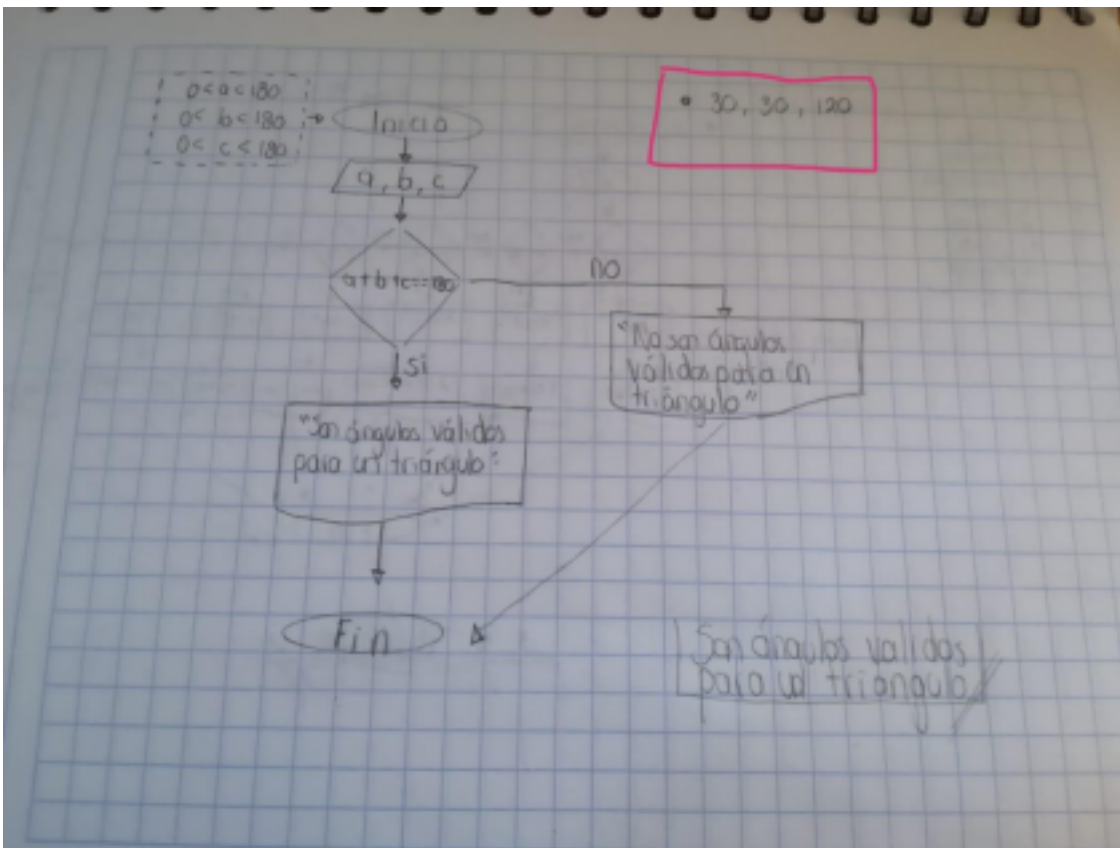 0 < a < 180
0 < b < 180
0 < c < 180
Inicio
• 30, 30, 120
a, b, c
a + b + c == 180
no
"No son ángulos
válidos para un
triángulo"
Si
"Son ángulos válidos
para un triángulo"
Fin
Son ángulos validos
para un triangulo